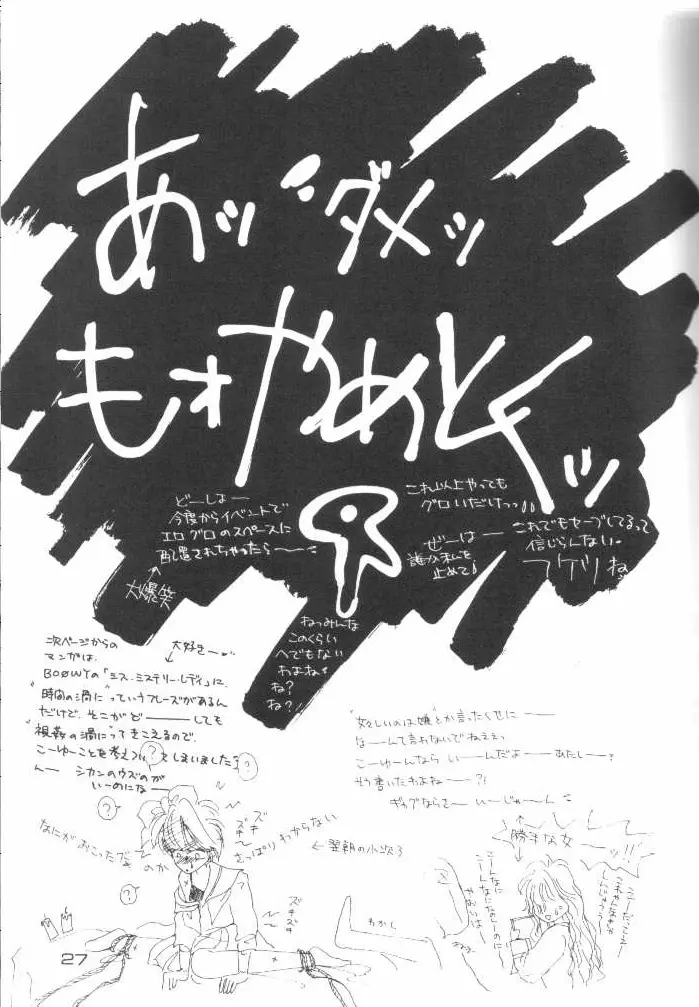 あッダメッ
もォやめとくッ
どーしよー
今度からイベントで
エログロのスペースに
配置されちゃったら〜〜〜
大爆笑
これ以上やっても
グロいだけっっ
ぜーはー
誰か私を
止めて
これでもセーブしてるって
信じらんない。
フケツね
ねっみんな
このくらい
へでもない
わよね
ね?
ね?
次ページからの
マンガは、
大好きー
BOØWYの「ミス・ミステリー・レディ」に、
"時間の渦に"っていうフレーズがあるん
だけど、そこがど———しても
"視姦の渦に"ってきこえるので、
こーゆーことを考えついてしまいました
んー シカンのウズのが
いーのになー
"妖しいのは嫌"とか言ったくせに——
なーんて言わないでねえぇっ
こーゆーんなら いーんだよーあたしー
もう書いたわよねー?!
ギャグならさー いーじゃーん
勝手な女ーッ!!
なにがおこったのか
さっぱりわからない
ズキズキ
← 翌朝の小次郎
ズキズキ
わかし
27